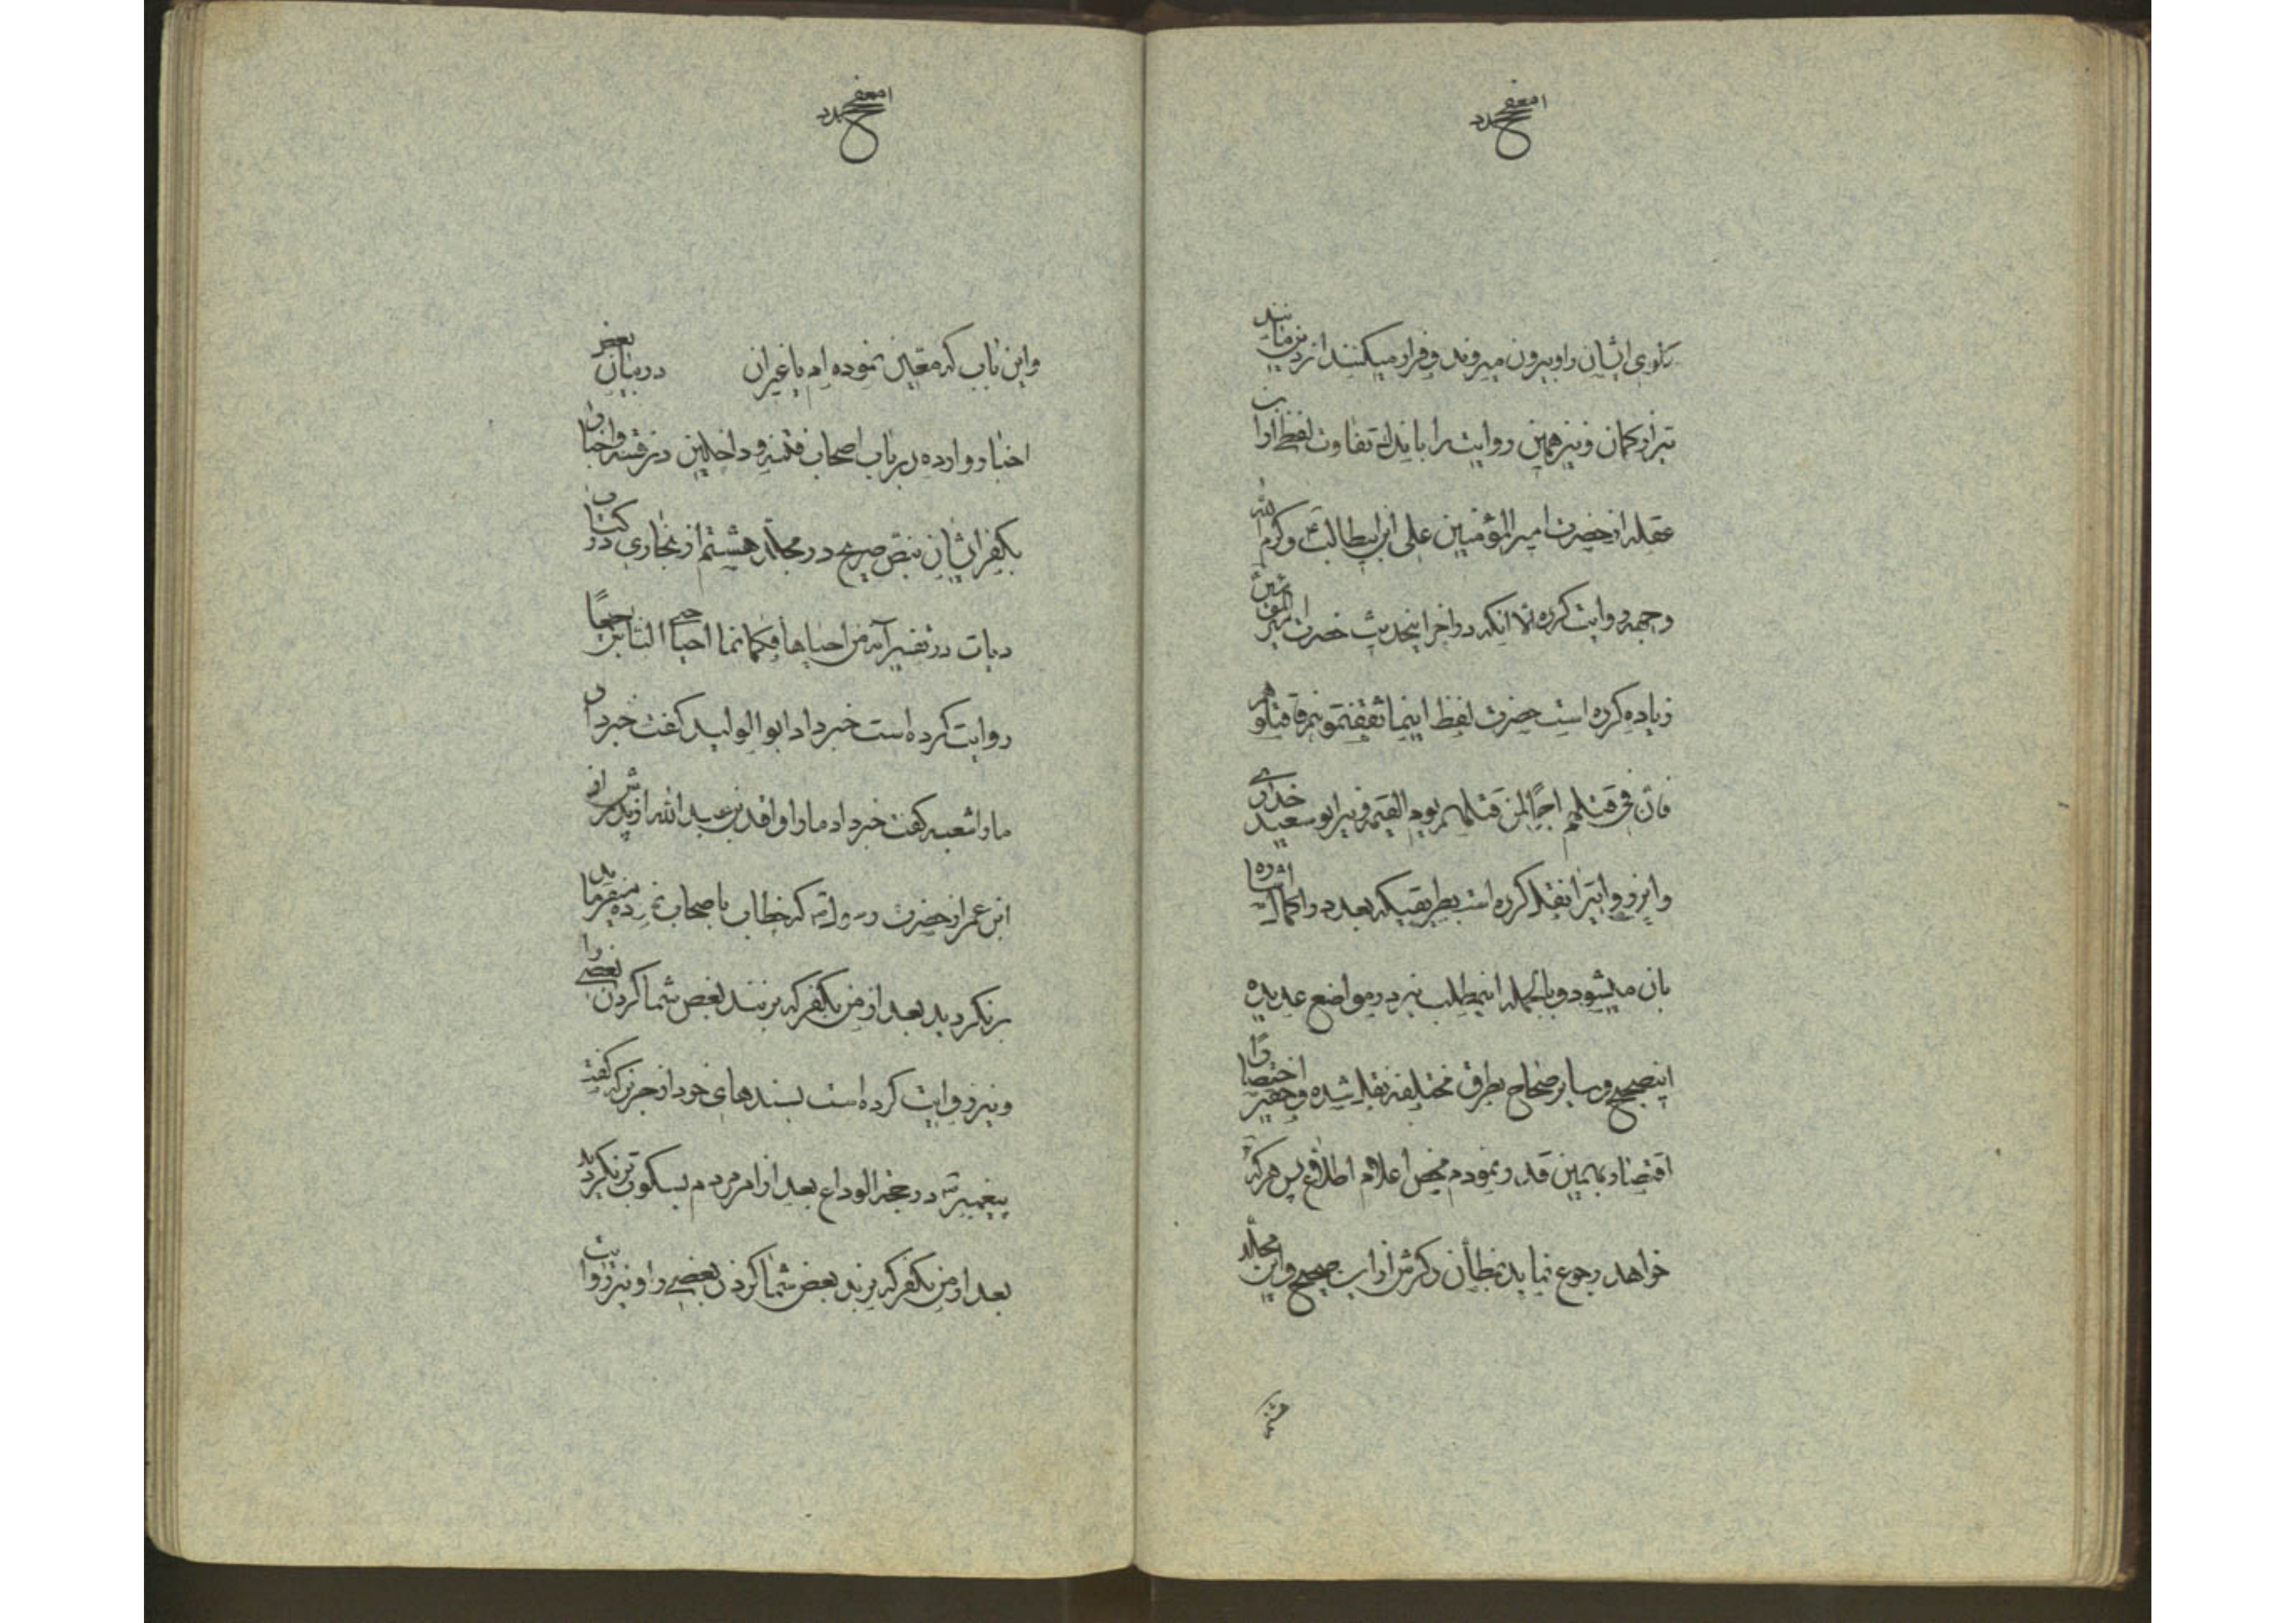 گلوی ایشان را و بیرون میروند و فرار میکنند از دین مانند
تیر از کمان و نیز همین روایت را باندک تفاوت لفظ از ابن
عقله از حضرت امیر المؤمنین علی ابن ابیطالب ع و کرم الله
وجهه روایت کرده الا انکه در اخر اینحدیث حضرت امیر المؤمنین
زیاده کرده است حضرت لفظ اینما ثقفتموهم فاقتلوهم
فان فی قتلهم اجرا لمن قتلهم یوم القیمة و نیز ابو سعید خدری
و این روایترا نقل کرده است بطریقیکه بعد در اکمال اشاره
بان میشود و بالجمله اینمطلب نیز در مواضع عدیده
اینصحیح و سایر صحاح بطرق مختلفه نقل شده و حقیر اختصارا
اقتصار بهمین قدر نمودم محض اعلام اطلاع پس هر که
خواهد رجوع نماید بمظان ذکرش از ابواب صحیح و این مجلد
و این باب که معین نموده ام با غیر ان در بیان بعض
اخبار وارده در باب اصحاب فتنه و داخلین در فتنه و اخبار
بکفر ایشان بنص صریح در مجلد هشتم از بخاری در کتاب
دیات در تفسیر آیه من احیاها فکانما احیی الناس جمیعا
روایت کرده است خبر داد ابو الولید گفت خبر داد
ما را شعبه گفت خبر داد ما را واقد بن عبد الله از پدرش از
ابن عمر از حضرت رسول ص که خطاب باصحاب نموده میفرماید
برنگردید بعد از من بکفر که بزنند بعض شما گردن بعضی را
و نیز روایت کرده است بسندهای خود از جریر که گفت
پیغمبر ص در حجة الوداع بعد از امر مردم بسکوت برنگردید
بعد از من بکفر که بزند بعض شما گردن بعضی را و نیز روایت